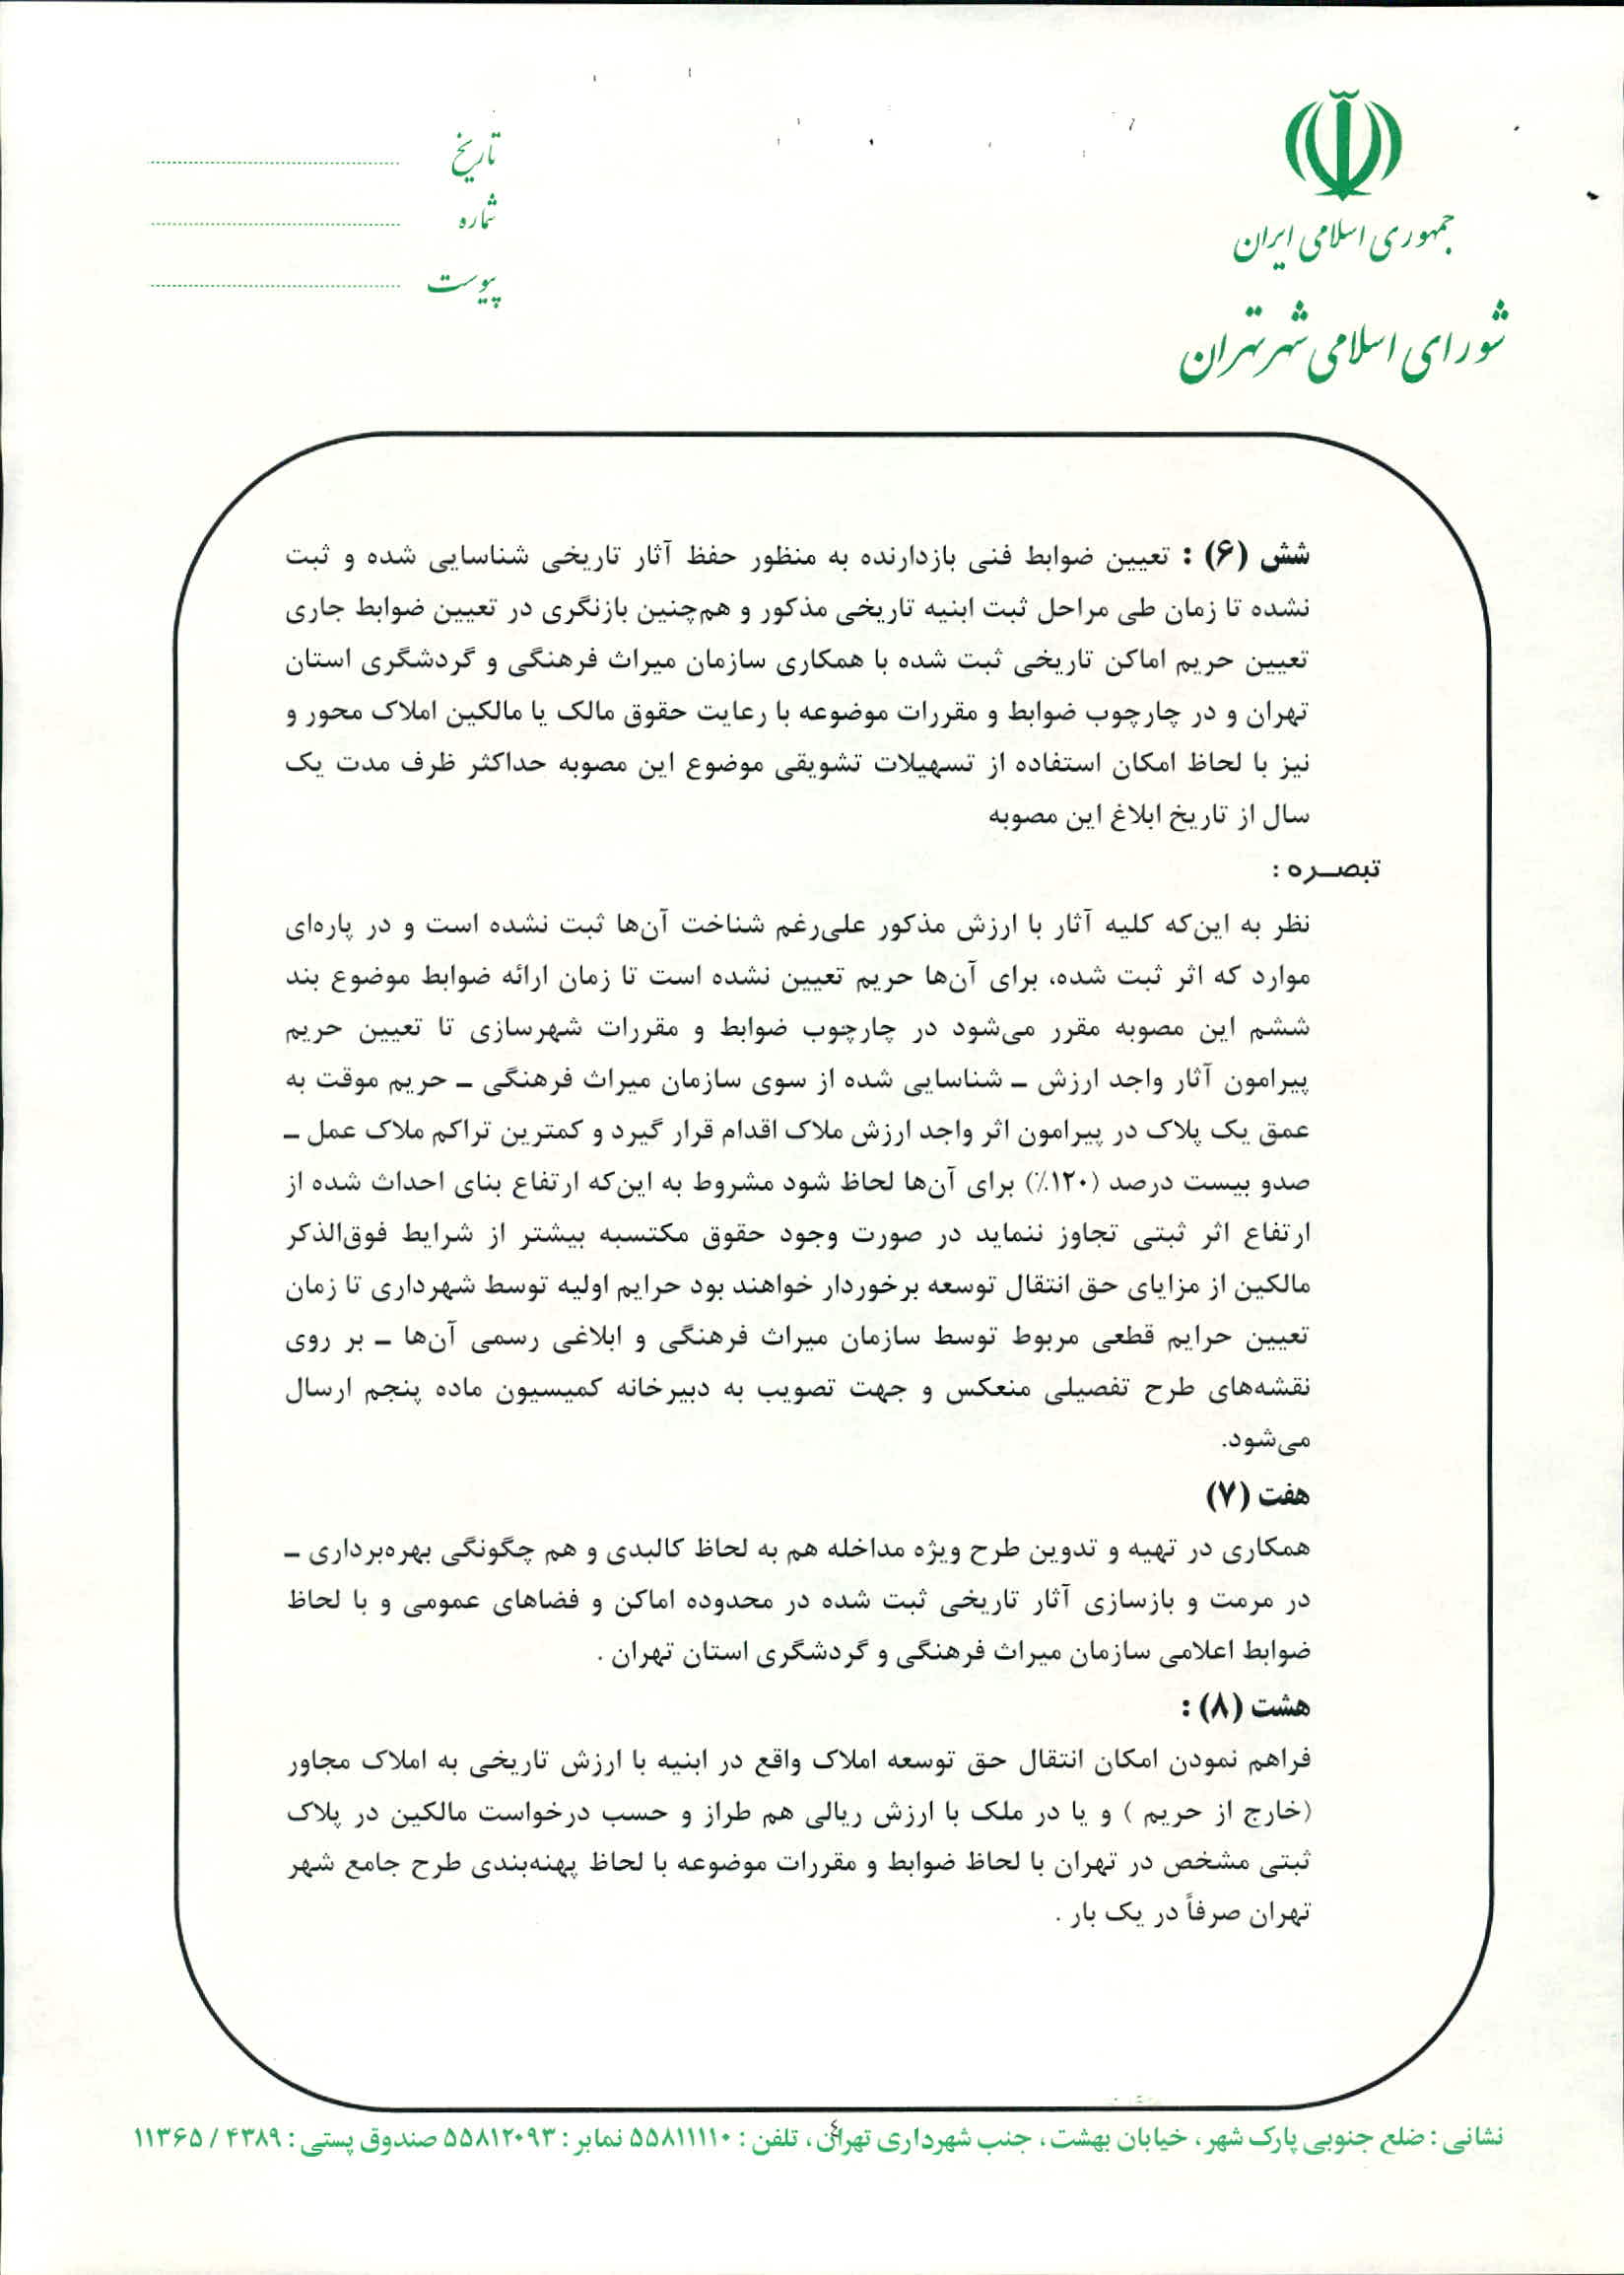 جمهوری اسلامی ایران
شورای اسلامی شهر تهران
تاریخ
شماره
پیوست
شش (۶) : تعیین ضوابط فنی بازدارنده به منظور حفظ آثار تاریخی شناسایی شده و ثبت
نشده تا زمان طی مراحل ثبت ابنیه تاریخی مذکور و هم‌چنین بازنگری در تعیین ضوابط جاری
تعیین حریم اماکن تاریخی ثبت شده با همکاری سازمان میراث فرهنگی و گردشگری استان
تهران و در چارچوب ضوابط و مقررات موضوعه با رعایت حقوق مالک یا مالکین املاک محور و
نیز با لحاظ امکان استفاده از تسهیلات تشویقی موضوع این مصوبه حداکثر ظرف مدت یک
سال از تاریخ ابلاغ این مصوبه
تبصـره :
نظر به این‌که کلیه آثار با ارزش مذکور علی‌رغم شناخت آن‌ها ثبت نشده است و در پاره‌ای
موارد که اثر ثبت شده، برای آن‌ها حریم تعیین نشده است تا زمان ارائه ضوابط موضوع بند
ششم این مصوبه مقرر می‌شود در چارچوب ضوابط و مقررات شهرسازی تا تعیین حریم
پیرامون آثار واجد ارزش ـ شناسایی شده از سوی سازمان میراث فرهنگی ـ حریم موقت به
عمق یک پلاک در پیرامون اثر واجد ارزش ملاک اقدام قرار گیرد و کمترین تراکم ملاک عمل ـ
صدو بیست درصد (۱۲۰٪) برای آن‌ها لحاظ شود مشروط به این‌که ارتفاع بنای احداث شده از
ارتفاع اثر ثبتی تجاوز ننماید در صورت وجود حقوق مکتسبه بیشتر از شرایط فوق‌الذکر
مالکین از مزایای حق انتقال توسعه برخوردار خواهند بود حرایم اولیه توسط شهرداری تا زمان
تعیین حرایم قطعی مربوط توسط سازمان میراث فرهنگی و ابلاغی رسمی آن‌ها ـ بر روی
نقشه‌های طرح تفصیلی منعکس و جهت تصویب به دبیرخانه کمیسیون ماده پنجم ارسال
می‌شود.
هفت (۷)
همکاری در تهیه و تدوین طرح ویژه مداخله هم به لحاظ کالبدی و هم چگونگی بهره‌برداری ـ
در مرمت و بازسازی آثار تاریخی ثبت شده در محدوده اماکن و فضاهای عمومی و با لحاظ
ضوابط اعلامی سازمان میراث فرهنگی و گردشگری استان تهران .
هشت (۸) :
فراهم نمودن امکان انتقال حق توسعه املاک واقع در ابنیه با ارزش تاریخی به املاک مجاور
(خارج از حریم ) و یا در ملک با ارزش ریالی هم طراز و حسب درخواست مالکین در پلاک
ثبتی مشخص در تهران با لحاظ ضوابط و مقررات موضوعه با لحاظ پهنه‌بندی طرح جامع شهر
تهران صرفاً در یک بار .
٤
نشانی : ضلع جنوبی پارک شهر ، خیابان بهشت، جنب شهرداری تهران، تلفن : ۵۵۸۱۱۱۱۰ نمابر : ۵۵۸۱۲۰۹۳ صندوق پستی : ۴۳۸۹ / ۱۱۳۶۵